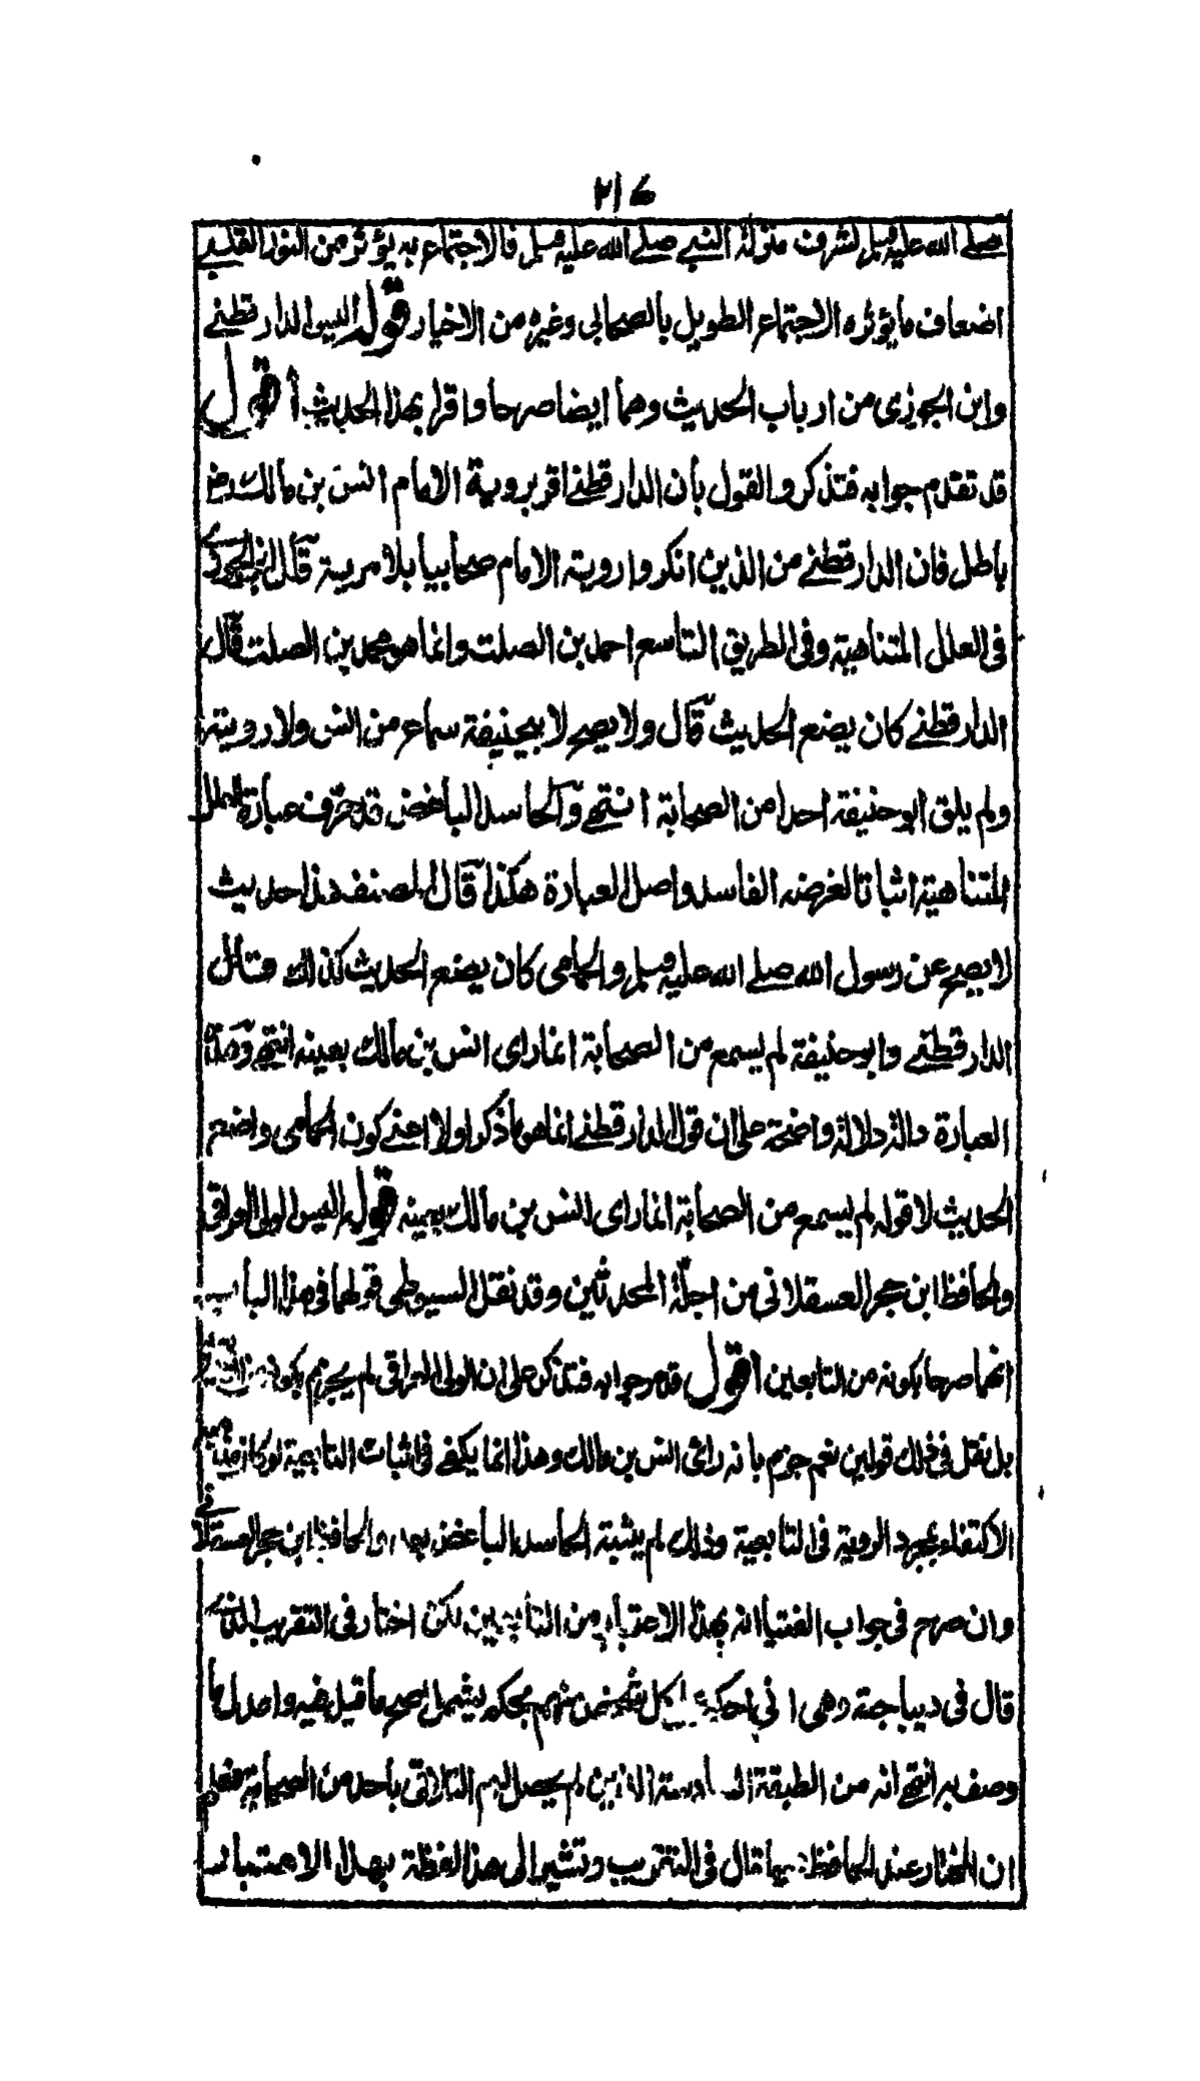 ٢١٦
صلى الله عليه وسلم لشرف منزلة النبي صلى الله عليه وسلم فالاجتماع به يؤثر من النور القلبي
اضعاف ما يؤثره الاجتماع الطويل بالصحابي وغيره من الاخيار قوله الدارقطني
وابن الجوزي من ارباب الحديث وهما ايضا صرحا واقرا بهذا الحديث أقول
قد تقدم جوابه فتذكر والقول بأن الدارقطني اقر بروية الامام انس بن مالك رضـ
باطل فان الدارقطني من الذين انكروا روية الامام صحابيا بلا مرية قال ابن الجوزي
في العلل المتناهية وفى الطريق التاسع احمد بن الصلت وانما هو محمد بن الصلت قال
الدارقطني كان يضع الحديث قال ولا يصح لابيحنيفة سماع من انس ولا روية
ولم يلق ابو حنيفة احدا من الصحابة انتهى والحاسد الباغض قد حرف عبارة العلل
المتناهية اثباتا لغرضه الفاسد واصل العبارة هكذا قال المصنف هذا حديث
لا يصح عن رسول الله صلى الله عليه وسلم والحمامى كان يضع الحديث كذلك قال
الدارقطني وابو حنيفة لم يسمع من الصحابة انما راى انس بن مالك بعينه انتهى وهذه
العبارة دالة دلالة واضحة على ان قول الدارقطني انما هو ما ذكر اولا اعني كون الحمامى واضع
الحديث لا قوله لم يسمع من الصحابة انما راى انس بن مالك بعينه قوله اليس الولى العراقى
والحافظ ابن حجر العسقلانى من اجلة المحدثين وقد نقل السيوطى قولهما فى هذا الباب
انهما صرحا بكونه من التابعين أقول قد مر جوابه فتذكر على ان الولى العراقى لم يجزم بكونه من
بل نقل فى ذلك قولين نعم جزم بانه رائى انس بن مالك وهذا انما يكفى فى اثبات التابعية لو كان
الاكتفاء بمجرد الروية فى التابعية وذلك لم يثبته الحاسد الباغض بعد والحافظ ابن حجر العسقلانى
وان صرح فى جواب الفتيا انه بهذا الاعتبار من التابعين لكن اختار فى التقريب الذى
قال فى ديباجته وهى انى احكم على كل شخص منهم بحكم يشمل اصح ما قيل فيه واعدل ما
وصف به انتهى انه من الطبقة السادسة الذين لم يحصل لهم التلاقى باحد من الصحابة فعلم
ان المختار عند الحافظ ما قال فى التقريب وتشير الى هذا لفظة بهذا الاعتبار